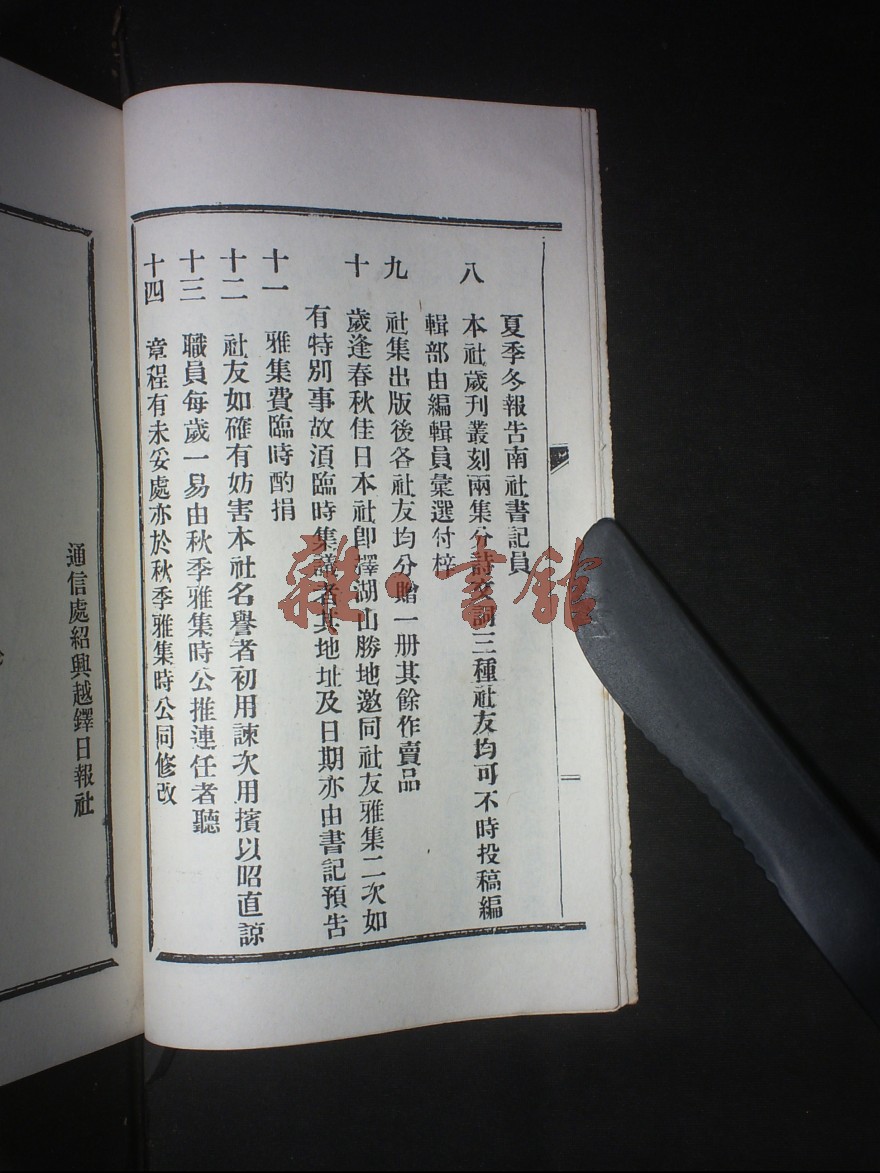 夏季冬報告南社書記員
八 本社歲刊叢刻兩集分詩文詞三種社友均可不時投稿編
輯部由編輯員彙選付梓
九 社集出版後各社友均分贈一册其餘作賣品
十 歲逢春秋佳日本社卽擇湖山勝地邀同社友雅集二次如
有特別事故須臨時集議者其地址及日期亦由書記預告
十一 雅集費臨時酌捐
十二 社友如確有妨害本社名譽者初用諫次用擯以昭直諒
十三 職員每歲一易由秋季雅集時公推連任者聽
十四 章程有未妥處亦於秋季雅集時公同修改
通信處紹興越鐸日報社
雜·書館